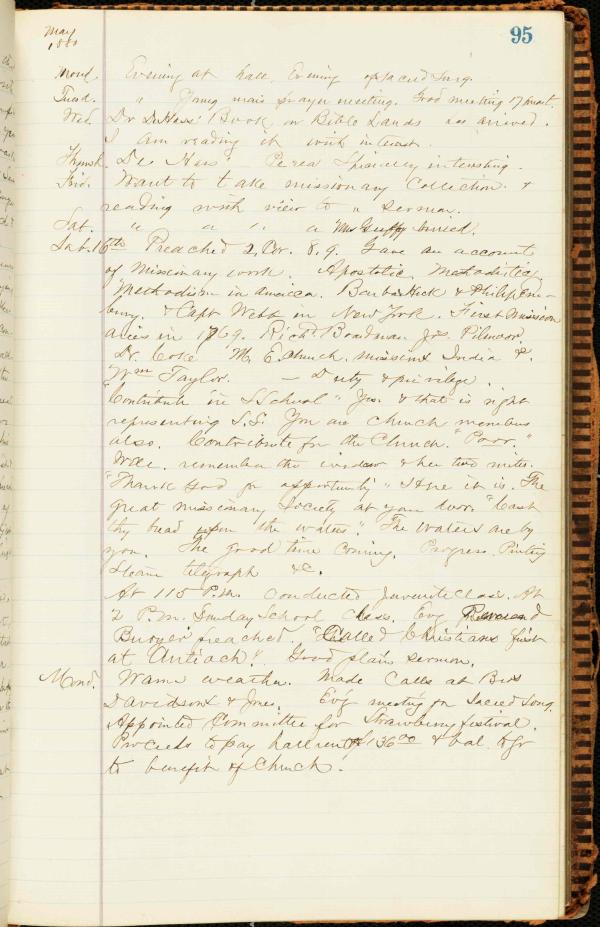 May
1880
95
Mond. Evening at hall. Evening of sacred Song.
Tuesd. " Young mens prayer meeting. Good meeting 17 present.
Wed. Dr De Hass' Book on Bible Lands has arrived.
I am reading it with interest.
Thursd. De Hass' Perea & interesting.
Frid. Want to take missionary Collection. &
reading with view to a sermon.
Sat. " " " " Mrs Guffy buried.
Sab. 16th Preached 2, Cor. 8, 9. Gave an account
of Missionary work. Apostolic, Methodistic,
Methodism in America. Barba Heck & Philip Em-
bury. & Capt Webb in New York. First Mission
aries in 1769. Richd. Boardman Jos. Pilmoor.
Dr. Coke M. E. Church. missions India &.
Wm Taylor. — Duty & privilege.
"Contribute in S School" Yes. & that is right
representing S.S. You are church members
also. Contribute for the Church. "Poor."
Well. remember the widow & her two mites.
"Thank God for opportunity" Here it is. The
great missionary Society at your door. "Cast
thy bread upon the waters." The waters are by
you. The good time coming. Progress. Printing
Steam telegraph &c.
At 115 P.m. conducted Juvenile Class. At
2 P.m. Sunday School class. Evg Reverend
preached. "Called Christians first
at Antioch". Good plain sermon.
Mond. Warm weather. Made Calls at Bros
Davidsons & Jones. Ev'g meeting for Sacred Song.
Appointed Committee for Strawberry festival.
Proceeds to pay hall rent of 136 00 & bal. to go
to benefit of Church.